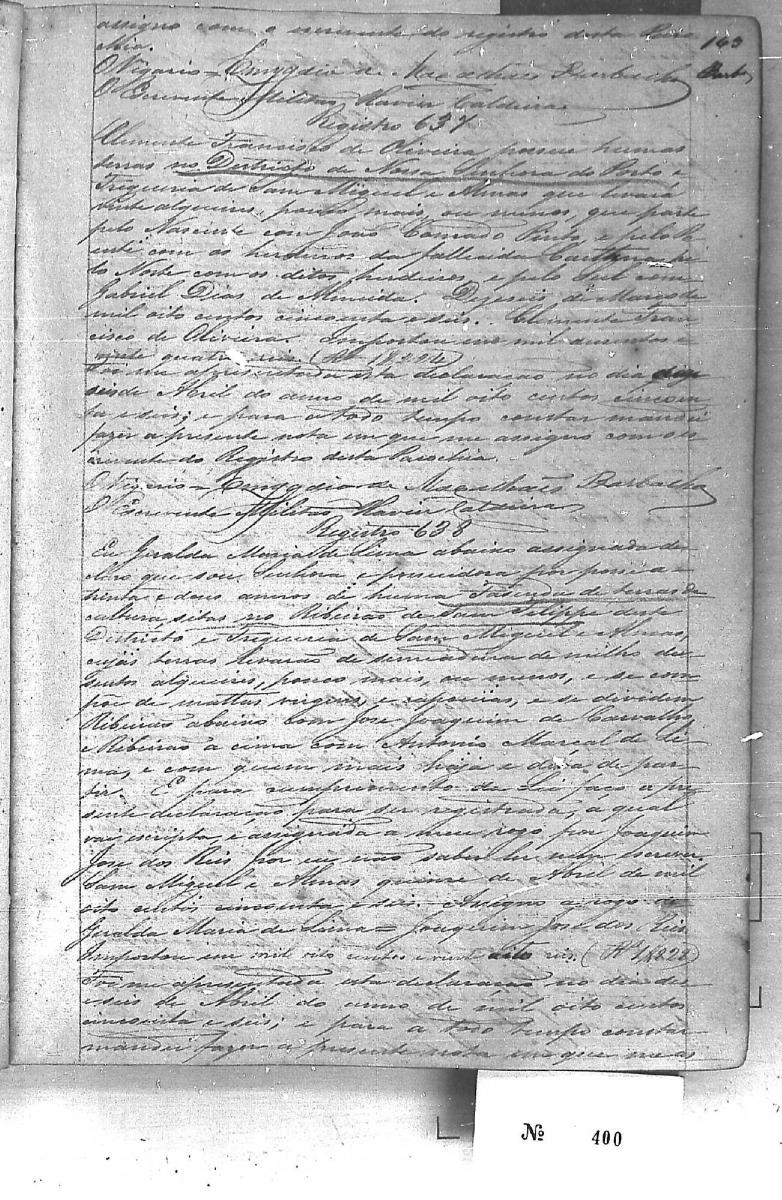 assigno com o escrivente do registro desta Paro
chia.
163
O Vigario = Emygdio de Magalhães
O Escrivente Militão Xavier Caldeira
Registro 637
Clemente Francisco de Oliveira, possue humas
terras no Districto de Nossa Senhora do Porto e
Freguezia de Sam Miguel e Almas que levará
vinte alqueires, pouco mais, ou menos, que parte
pelo Nascente com João Conrado Pinto e pelo
com os herdeiros da fallecida pe
lo Norte com os ditos herdeiros, e pelo Sul com
Gabriel Dias de Almeida. Dezeseis de Março de
mil oito centos cincoenta e seis. Clemente Fran
cisco de Oliveira. Importou em mil duzentos e
vinte quatro reis.
Foi me apresentada esta declaração no dia deze
seis de Abril do anno de mil oito centos cincoen
ta e seis; e para a todo tempo constar mandei
fazer a presente nota em que me assigno com o es
crivente do Registro desta Parochia.
O Vigario = Emygdio de Magalhães
O Escrivente Militão Xavier Caldeira
Registro 638
Eu Geralda Maria de Lima abaixo assignada de
claro que sou Senhora e possuidora por posse a
trinta e dous annos de huma Fasenda de terras de
cultura, sitas no Ribeirão de Sam Felippe deste
Districto e Freguezia de Sam Miguel e Almas,
cujas terras levarão de semeadura de milho du
sentos alqueires, pouco mais, ou menos, e se com
põe de mattas virgens, e capoeiras, e se dividem
Ribeirão abaixo com José Joaquim de Carvalho,
e Ribeirão a cima com Antonio Marcal de Le
mas, e com quem mais haja e deva de par
tir. E para cumprimento da Lei faço a pre
sente declaração para ser registrada, a qual
vai escripta, e assignada a meu rogo por Joaquim
José dos Reis por eu não saber ler nem escrever.
Sam Miguel e Almas quinze de Abril de mil
oito centos cincoenta e seis. Assigno a rogo de
Geralda Maria de Lima = Joaquim José dos Reis
Importou em mil oito centos e vinte oito reis. 1$828
Foi me apresentada esta declaração no dia dez
e seis de Abril do anno de mil oito centos
cincoenta e seis; e para a todo tempo constar
mandei fazer a presente nota em que me as
Nº 400